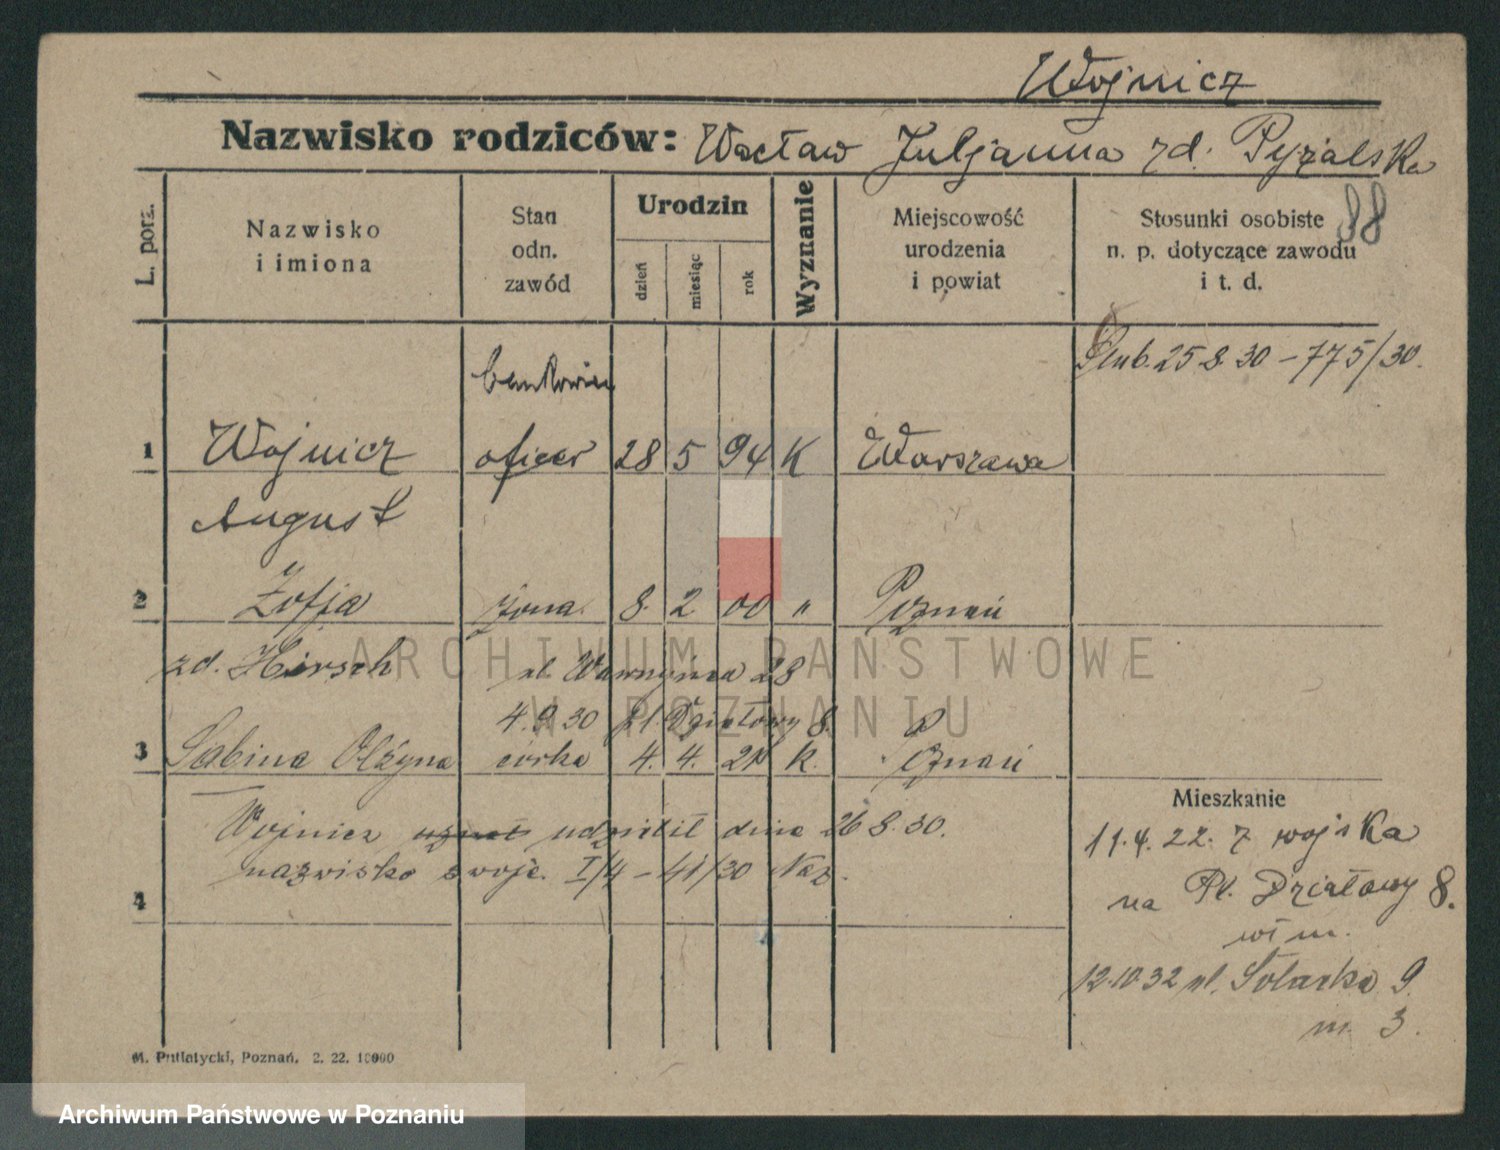 Wojnicz
Nazwisko rodziców: Wacław Juljanna zd. Pyzalska
88
L. porz.
Nazwisko i imiona
Stan odn. zawód
Urodzin
dzień
miesiąc
rok
Wyznanie
Miejscowość urodzenia i powiat
Stosunki osobiste n. p. dotyczące zawodu i t. d.
Ślub. 25 8. 30 – 775/30.
bankowiec
1 Wojnicz oficer 28 5 94 K Warszawa
August
2 Zofja żona 8. 2 00 " Poznań
zd. Hirsch ul. Wawrzyńca 28
4.9.30 Pl. Działowy 8.
3 Sabina Olżyna córka 4. 4. 21 k. Poznań
Wojnicz uznał udzielił dnia 26 8. 30.
nazwisko swoje. I/4 – 41/30 Naz.
4
Mieszkanie
11.4.22. z wojska
na Pl. Działowy 8.
wł m.
12.10.32 ul. Solarka 9.
m. 3.
M. Putiatycki, Poznań. 2. 22. 10000
ARCHIWUM PAŃSTWOWE
W POZNANIU
Archiwum Państwowe w Poznaniu